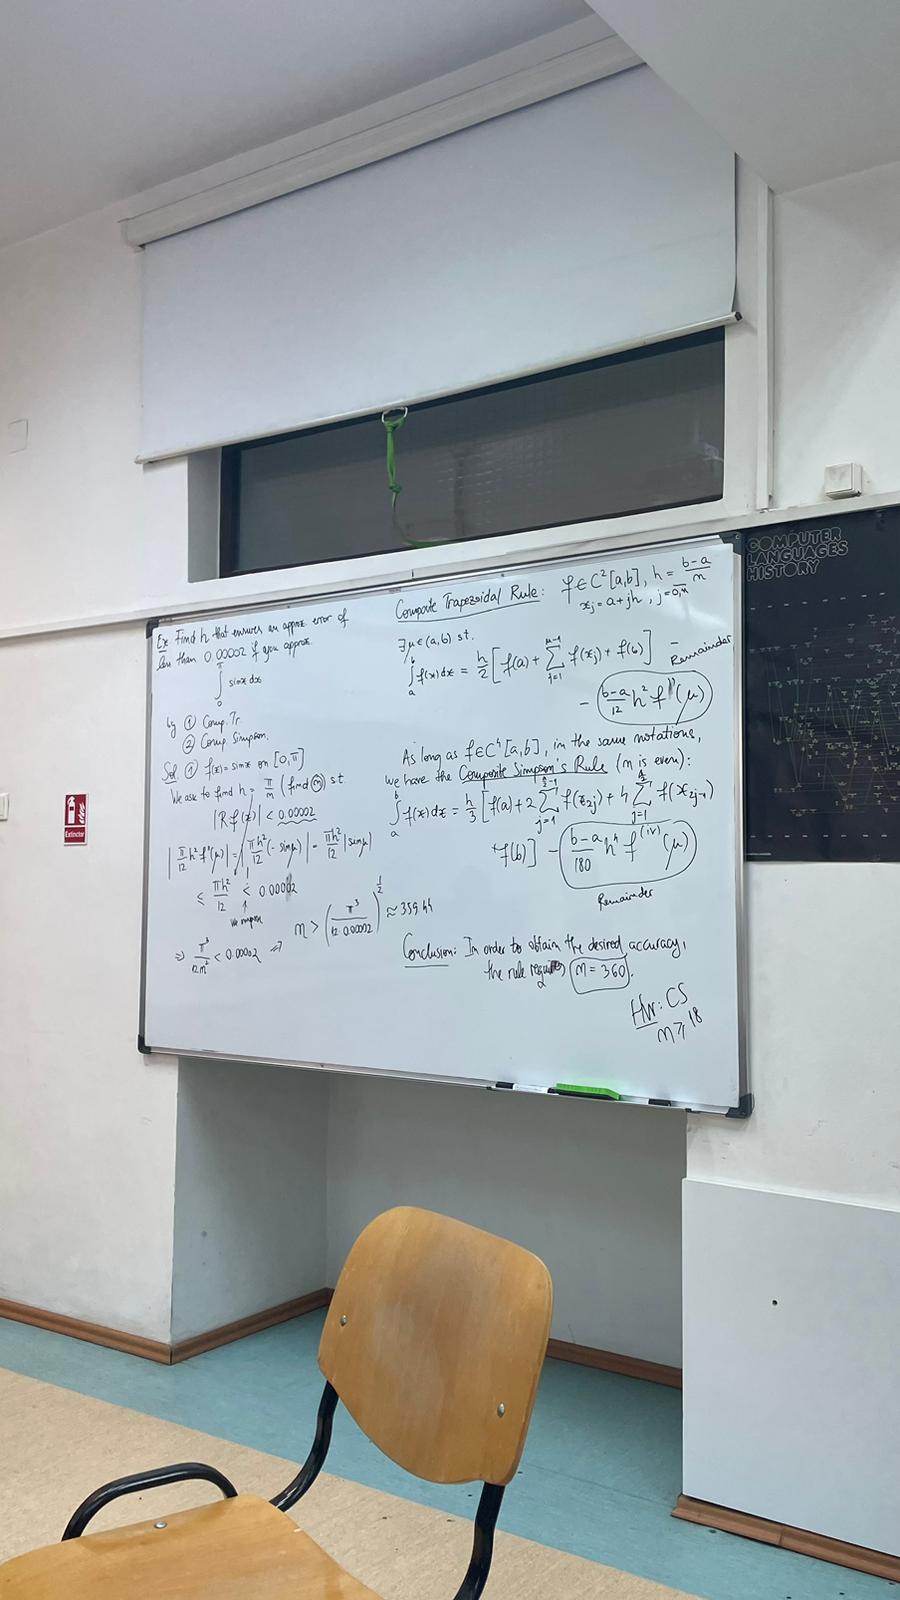 Ex: Find h that ensures an approx. error of
less than 0.00002 if you approx.
π
∫ sinx dx
0
by ① Comp. Tr.
② Comp. Simpson.
Sol ① f(x) = sinx on [0, π]
We ask to find h = π/n (find n) s.t.
|Rf(x)| < 0.00002
|π/12 h² f''(μ)| = |πh²/12 (-sinμ)| = πh²/12 |sinμ|
≤ πh²/12 < 0.00002
↑
we impose
⇒ π³/12n² < 0.00002 ⇒ n > (π³/12·0.00002)^(1/2) ≈ 359.44
Composite Trapezoidal Rule: f ∈ C²[a,b], h = b-a/n
x_j = a+jh, j=0,n
∃μ∈(a,b) s.t.
∫_a^b f(x)dx = h/2 [f(a) + ∑_{j=1}^{n-1} f(x_j) + f(b)] -
Remainder
- b-a/12 h² f''(μ)
As long as f∈C⁴[a,b], in the same notations,
we have the Composite Simpson's Rule (n is even):
∫_a^b f(x)dx = h/3 [f(a) + 2 ∑_{j=1}^{n/2-1} f(x_{2j}) + 4 ∑_{j=1}^{n/2} f(x_{2j-1})
+f(b)] - b-a/180 h⁴ f^(iv)(μ)
Remainder
Conclusion: In order to obtain the desired accuracy,
the rule requires n = 360.
HW: CS
n ≥ 18
COMPUTER
LANGUAGES
HISTORY
Extinctor